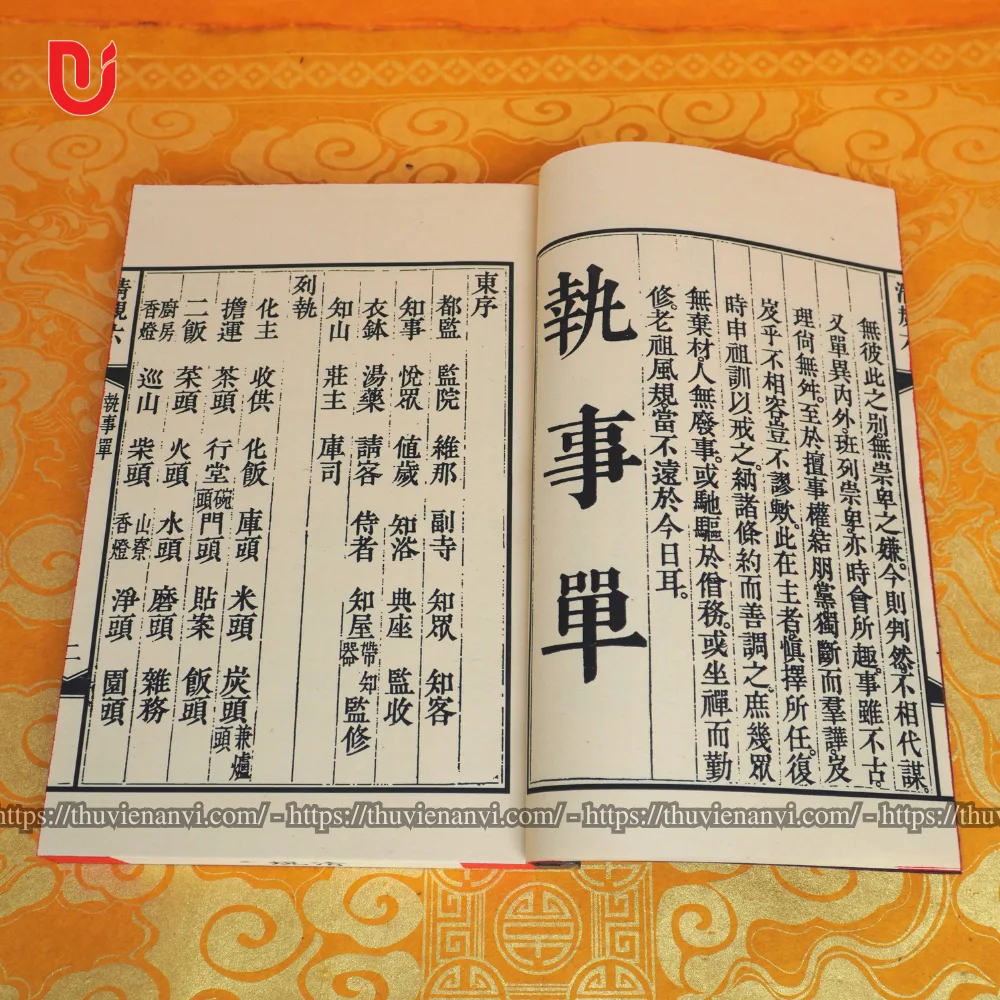 無彼此之別無崇卑之嫌。今則判然。不相代謀。
又單異內外。班列崇卑。亦時會所趣。事雖不古。
理尚無舛。至於擅事權。結朋黨。獨斷而羣譁。岌
岌乎不相容。豈不謬歟。此在主者。慎擇所任。復
時申祖訓以戒之。納諸條約而善調之。庶幾眾
無棄材。人無廢事。或馳驅於僧務。或坐禪而勤
修。老祖風規當不遠於今日耳。
執事單
東序
都監 監院 維那 副寺 知眾 知客
知事 悅眾 值歲 知浴 典座 監收
衣鉢 湯藥 請客 侍者 知屋帶知器 監修
知山 莊主 庫司
列執
化主 收供 化飯 庫頭 米頭 炭頭兼爐頭
擔運 茶頭 行堂碗頭 門頭 貼案 飯頭
二飯 菜頭 火頭 水頭 磨頭 雜務
廚房香燈 巡山 柴頭 山寮香燈 淨頭 園頭
清規六 執事單 二
https://thuvienanvi.com/ - https://thuvienanvi.com/ - https://thuvienanvi.com/ - https://thuvienanvi.com/